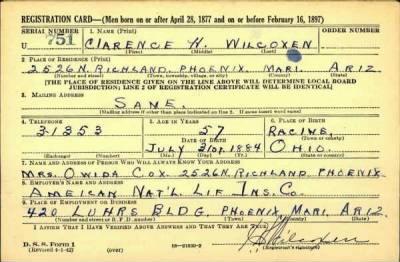 REGISTRATION CARD—(Men born on or after April 28, 1877 and on or before February 16, 1897)
SERIAL NUMBER 1. NAME (Print) ORDER NUMBER
U 751 CLARENCE H. WILCOXEN
(First) (Middle) (Last)
2. PLACE OF RESIDENCE (Print)
2526 N. RICHLAND, PHOENIX, MARI, ARIZ.
(Number and street) (Town, township, village, or city) (County) (State)
[THE PLACE OF RESIDENCE GIVEN ON THE LINE ABOVE WILL DETERMINE LOCAL BOARD
JURISDICTION; LINE 2 OF REGISTRATION CERTIFICATE WILL BE IDENTICAL]
3. MAILING ADDRESS
SAME.
[Mailing address if other than place indicated on line 2. If same insert word same]
4. TELEPHONE 5. AGE IN YEARS 6. PLACE OF BIRTH
3-1353 57 RACINE,
DATE OF BIRTH (Town or county)
JULY 31ST. 1884 OHIO.
(Exchange) (Number) (Mo.) (Day) (Yr.) (State or country)
7. NAME AND ADDRESS OF PERSON WHO WILL ALWAYS KNOW YOUR ADDRESS
MRS. OWIDA COX 2526 N. RICHLAND, PHOENIX
8. EMPLOYER'S NAME AND ADDRESS
AMEICAN NAT'L LIF INS. CO.
9. PLACE OF EMPLOYMENT OR BUSINESS
420 LUHRS BLDG, PHOENIX, MARI, ARIZ
(Number and street or R. F. D. number) (Town) (County) (State)
I AFFIRM THAT I HAVE VERIFIED ABOVE ANSWERS AND THAT THEY ARE TRUE.
D. S. S. Form 1
(Revised 4-1-42) (over) 16—21630-2 (Registrant's signature)